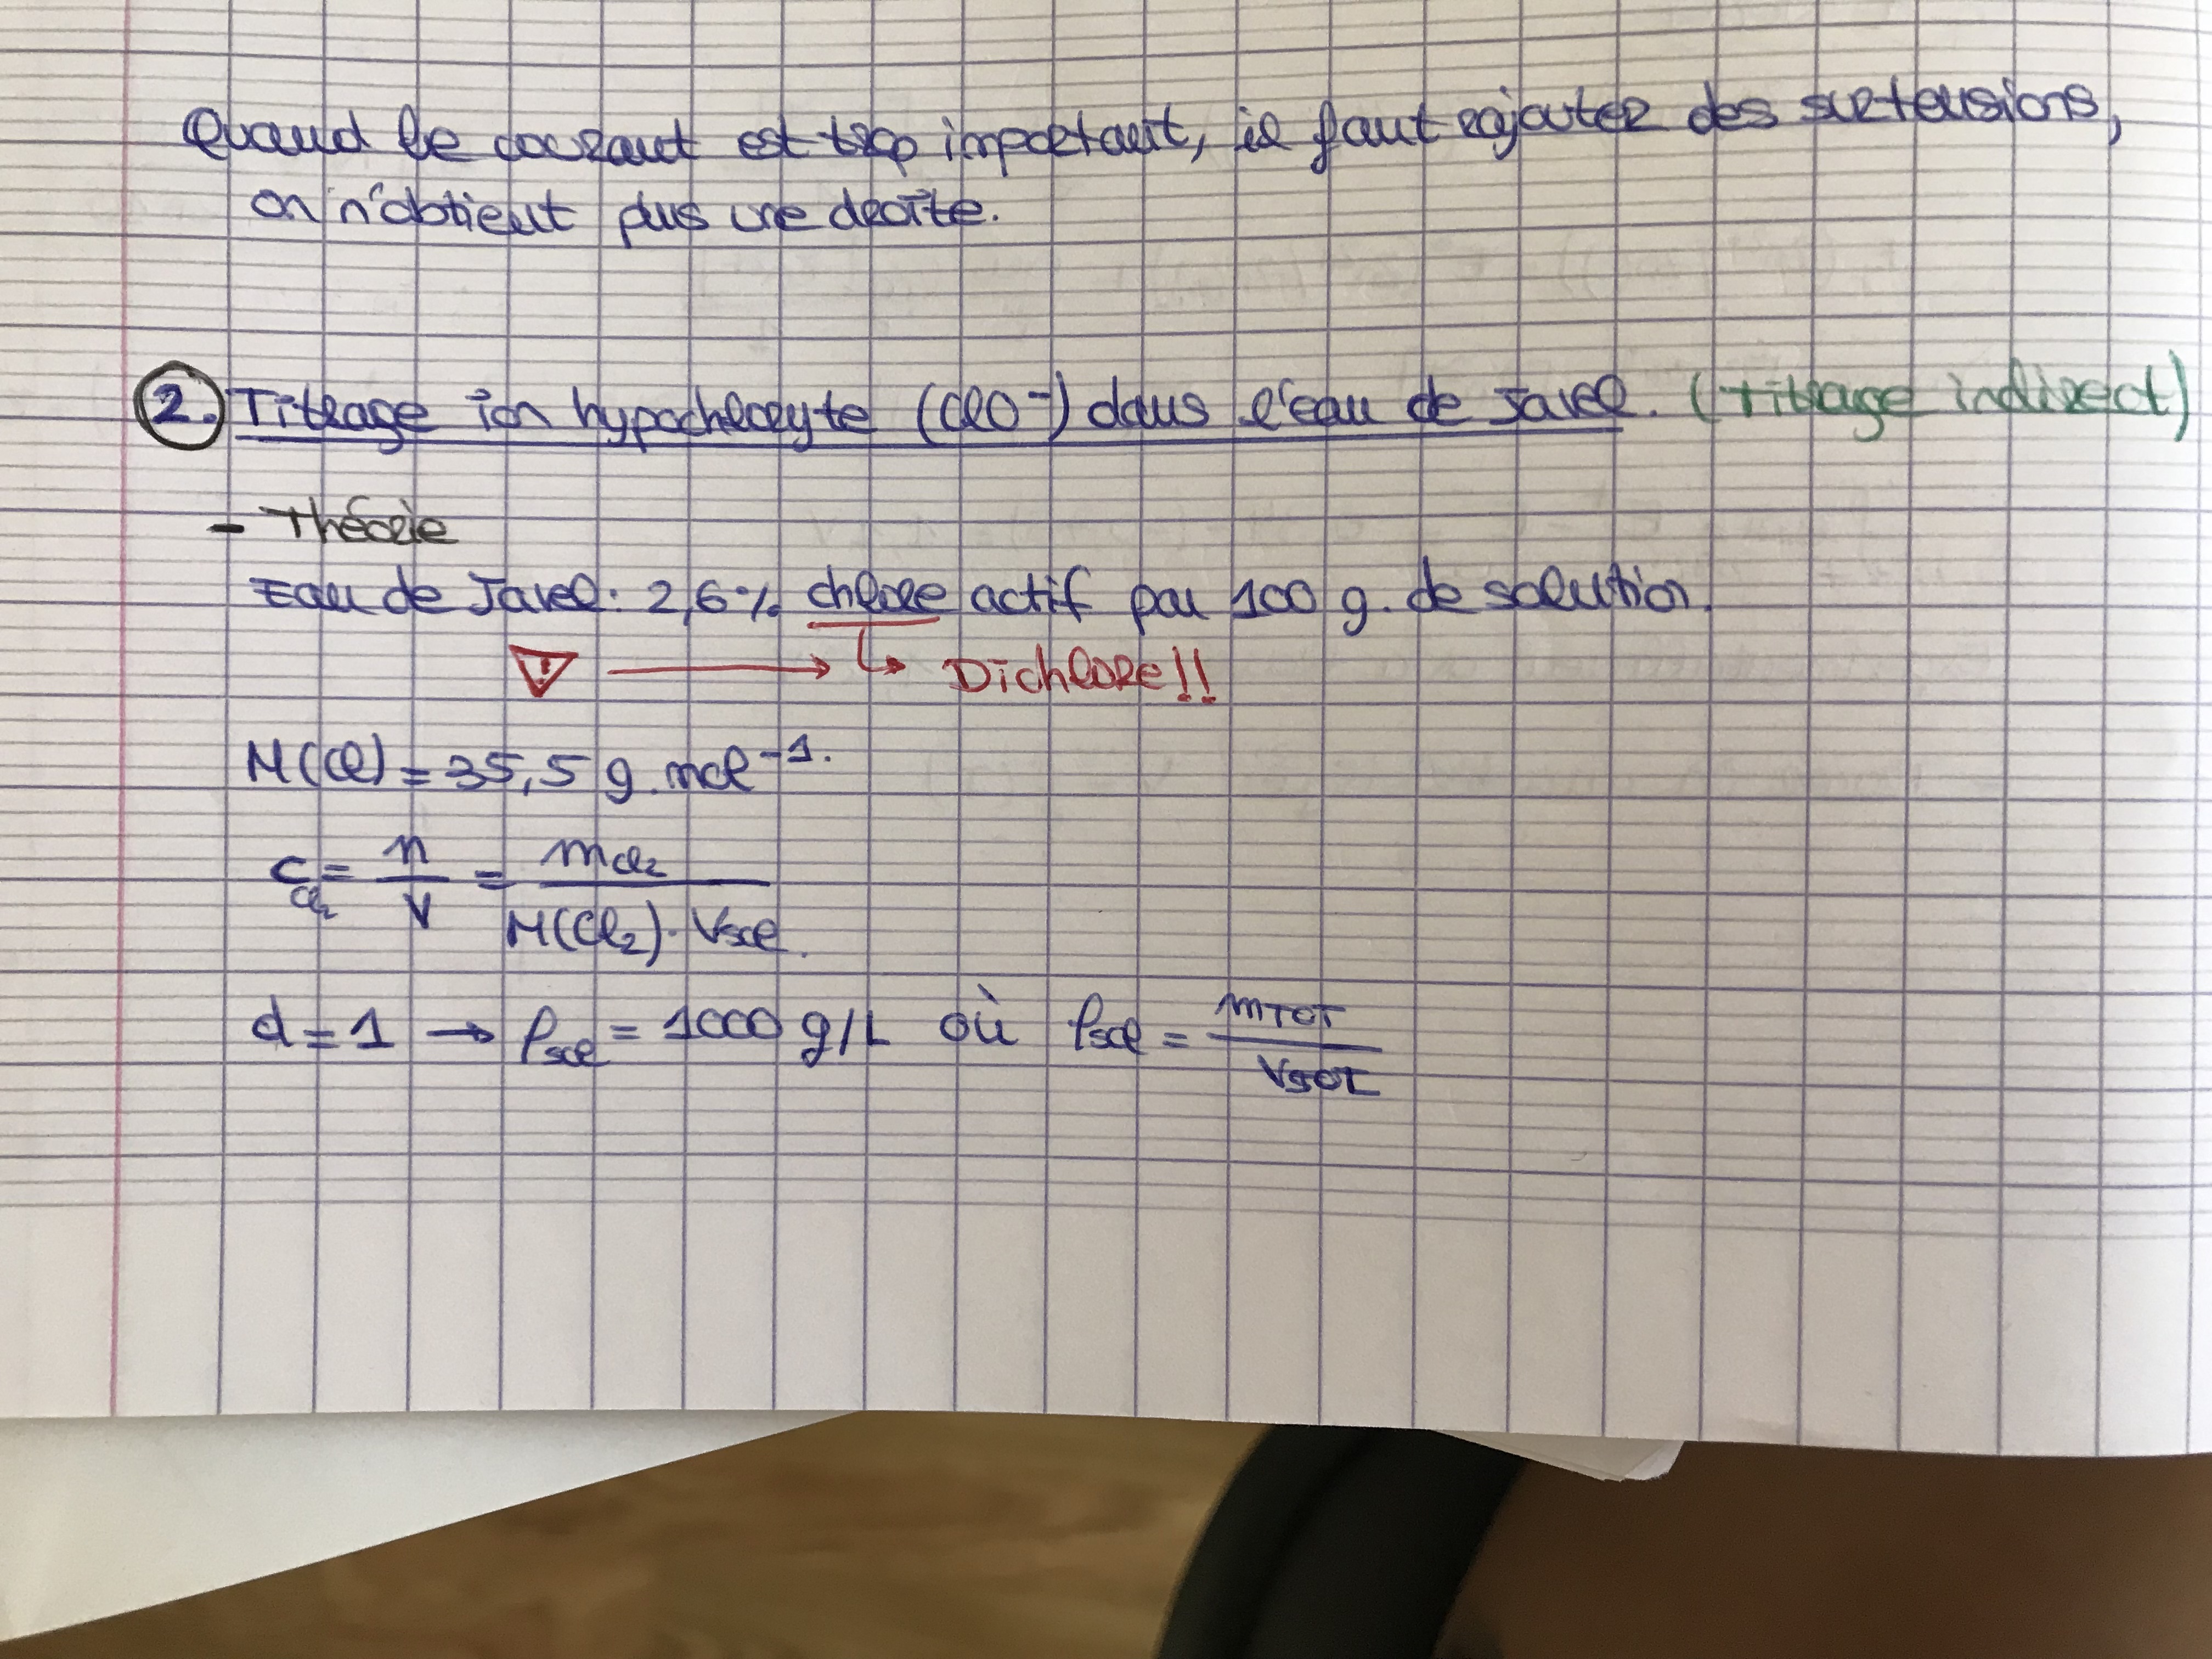 Quand le courant est trop important, il faut rajouter des surtensions,
on n'obtient plus une droite.
2. Titrage ion hypochloryte (ClO⁻) dans l'eau de Javel. (Titrage indirect)
- Théorie
Eau de Javel: 2,6% chlore actif par 100 g. de solution.
! → ↳ Dichlore!!
M(Cl) = 35,5 g.mol⁻¹.
C_Cl₂ = n/V = m_Cl₂ / M(Cl₂)·Vsol.
d = 1 → ρsol = 1000 g/L où ρsol = mTOT / VTOT